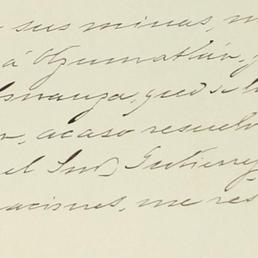 sus minas, 
á Ozumatlán, y
que se
, acaso resuelv
el Sor Gutierrez
aciones, me res